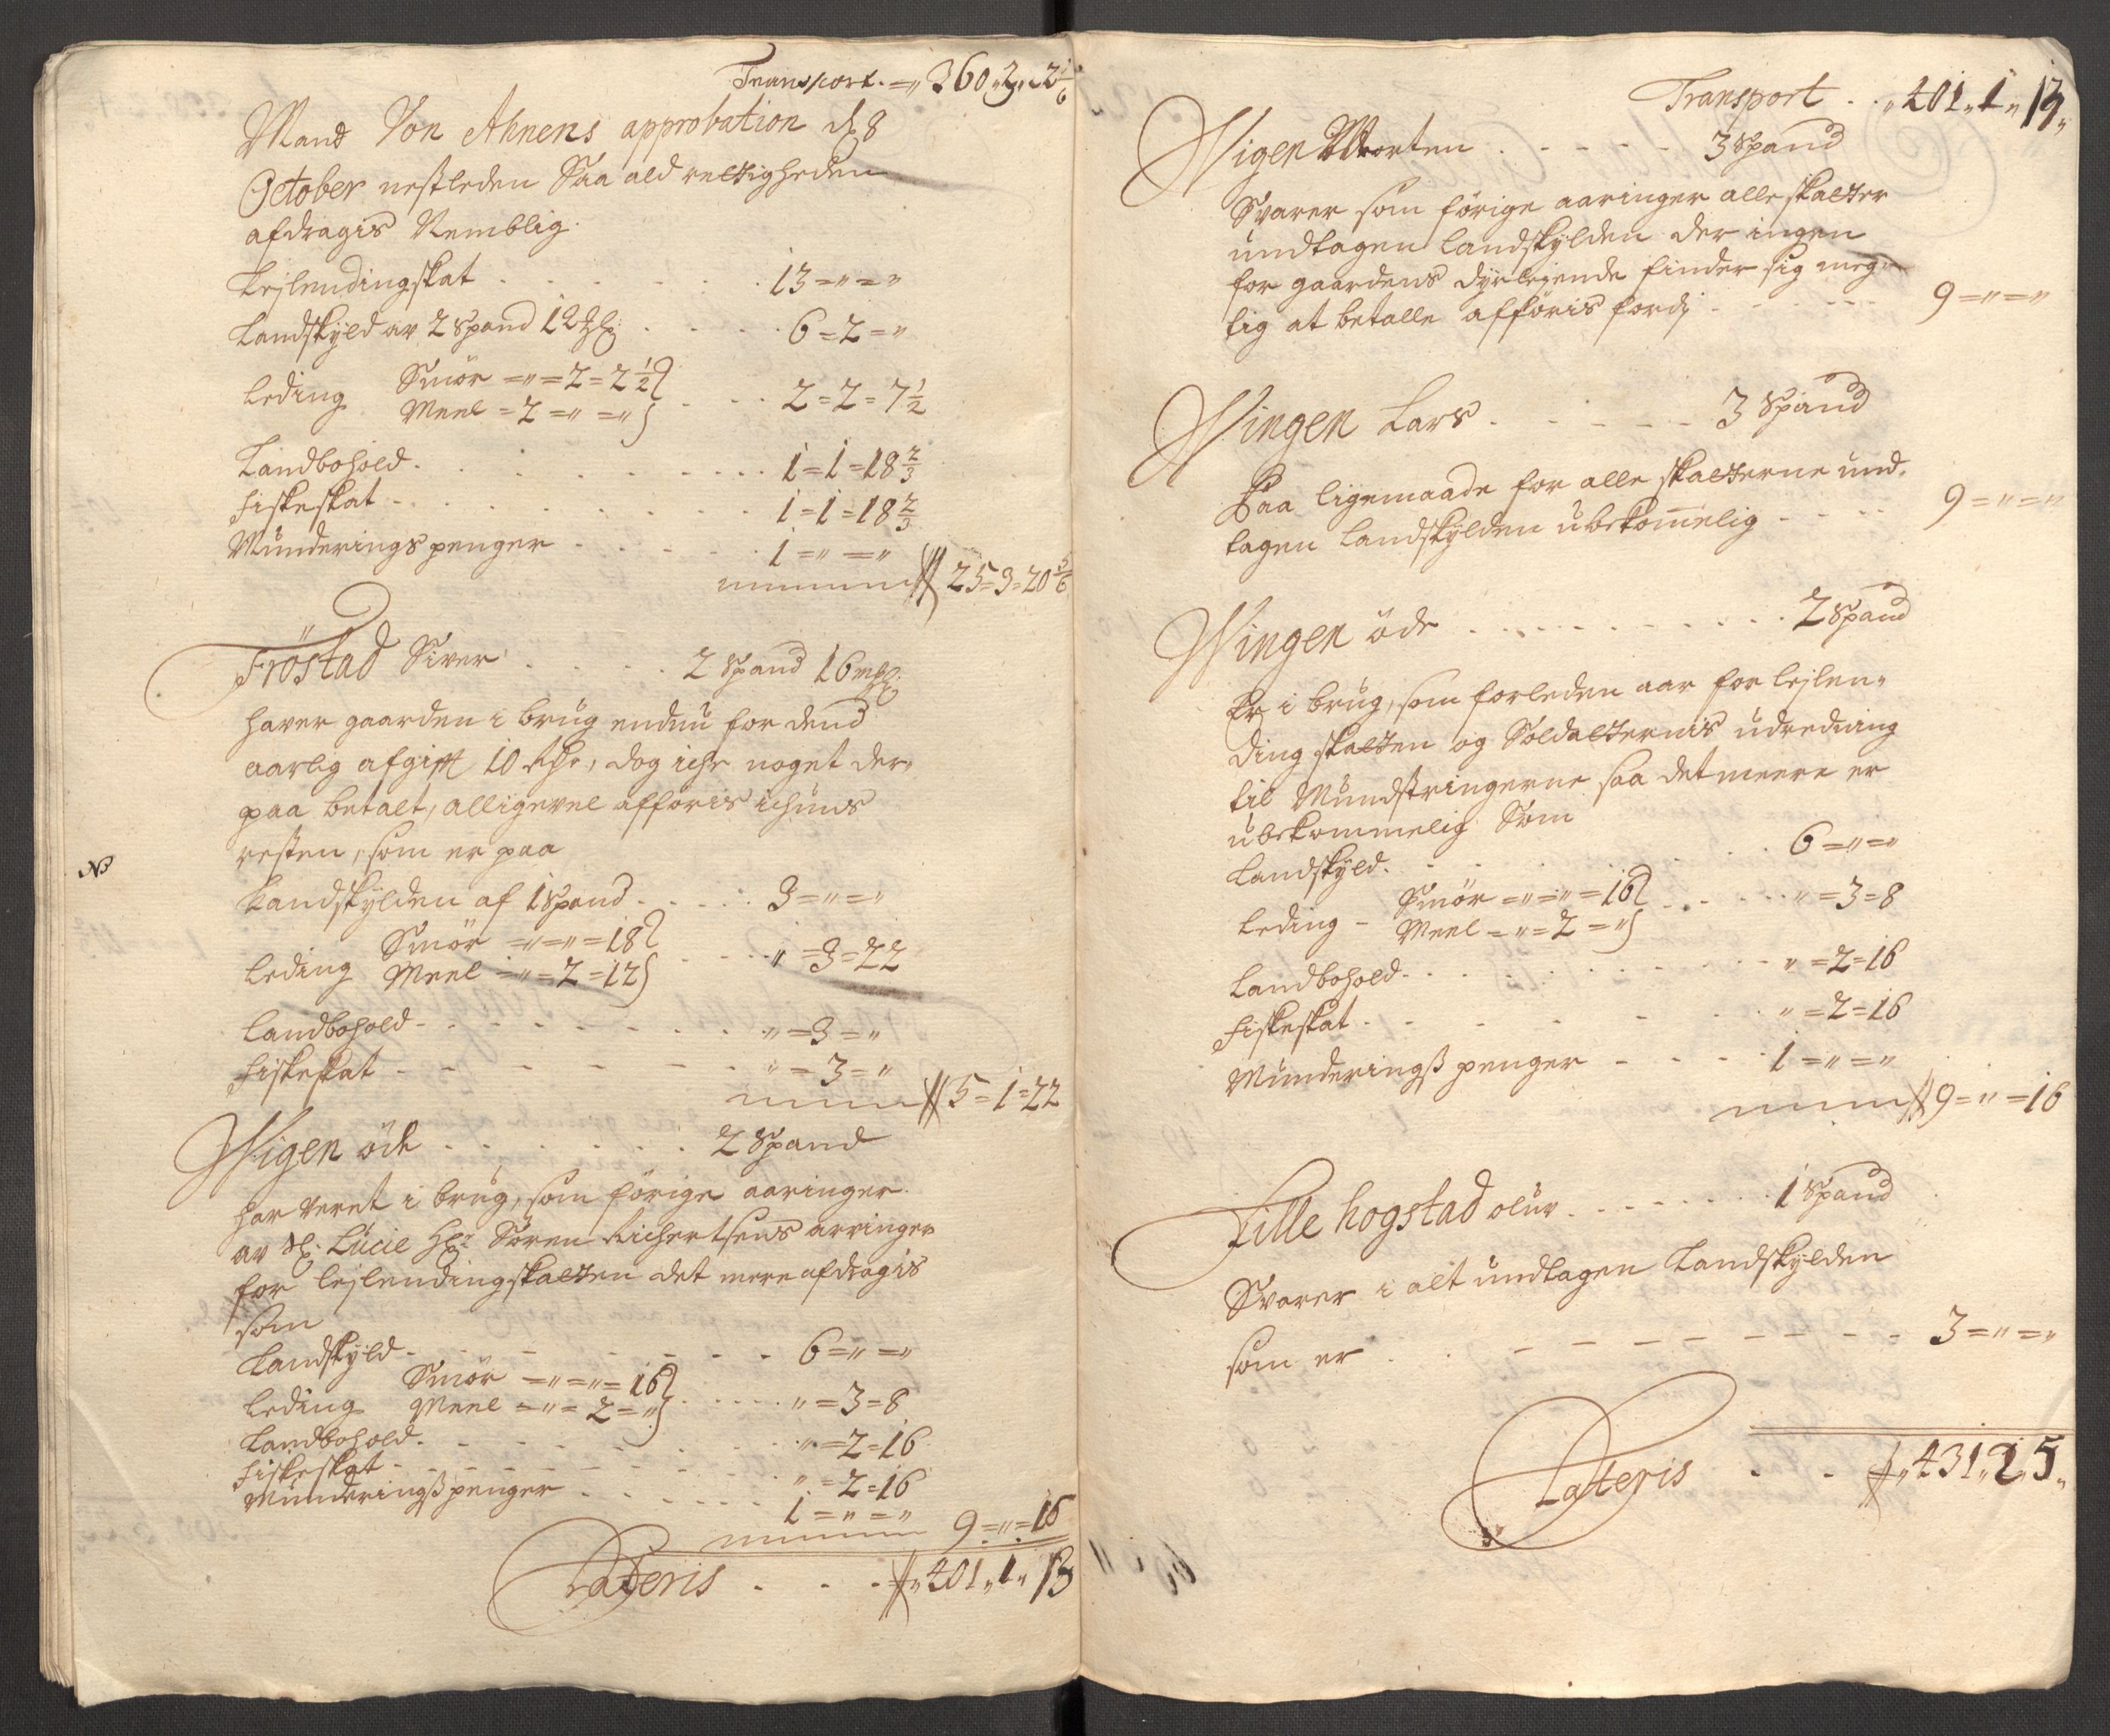 Transport. =„ 360„3„22 1/6
Mand Von Ahnens approbation dß 8
October nestleden Saa ald rettigheden
afdragis Nemblig.
Lejlendingskat . . . . . . 13=„=„
Landskyld av 2 Spand 12 . . . . 6=2=„
Leding Smör =„=2=2 1/2
Meel =2=„=„ . . . 2=2=7 1/2
Landbohold . . . . . . 1=1=18 2/3
Fiskeskat - . . . . . . 1=1=18 2/3
Munderings penger . . . . . 1=„=„
25=3=20 5/6
Fröstad Siver . . . . 2 Spand 16
hafver gaarden i brug endnu for dend
aarlig afgift 10 Rdr, dog iche noget der„
paa betalt, alligevel afföris ichuns
resten, som er paa
NB
Landskylden af 1 Spand . . . . 3=„=„
Leding Smör =„=„=18
Meel =„=2=12 . . . . „=3=22
Landbohold . . . . . . . „=3=„
Fiskeskat - - - - - - „=3=„
5=1=22
Wigen öde . . . . . . 2 Spand
har veret i brug, som förige aaringer
av Sl: Lücie Sören Richertsens arvinger
for lejlendingskatten det mere afdragis
som
Landskyld - - - - - - 6=„=„
Leding Smör =„=„=16
Meel =„=2=„ . . . . . „=3=8
Landbohold . . . . . . „=2=16
Fiskeskat - - - - - - „=2=16
Munderingß penger . . . . . . 1=„=„
9=„=16
Lateris . . . „401„1„13
Transport . . „401„1„13„
Wigen Morten . . . . . 3 Spand
Svarer som förige aaringer alle skatter
undtagen Landskylden der ingen
for gaardens dyrlejende finder sig meg„
lig at betalle afföris fordj . . . . . 9=„=„
Wingen Lars . . . . . . 3 Spand
Paa ligemaade for alle skatterne und„
tagen Landskylden ubekom̄elig . . . . 9=„=„
Wingen öde . . . . . . . . . 2 Spand
Er i brug, som forleden aar for lejlen„
ding skatten og Soldatternis udredning
til Mundstringerne saa det meere er
ubekommelig Som
Landskyld . . . . . . . 6=„=„
Leding - Smör =„=„=16
Meel =„=2=„ . . . . . „=3=8
Landbohold . . . . . . . „=2=16
Fiskeskat . . . . . . . „=2=16
Munderingß penger - . . . . 1=„=„
9=„=16
Lille hogstad oluv . . . . . . 1 Spand
Svarer i alt undtagen Landskylden
som er . . - - - - - - - 3=„=„
Lateris . . „431„2„5„